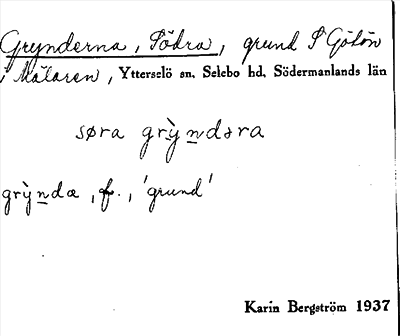 Grynderna, Södra, grund S Götön
i Mälaren, Ytterselö sn, Selebo hd, Södermanlands län
søra grỳndəra
grỳnda, f., 'grund'
Karin Bergström 1937